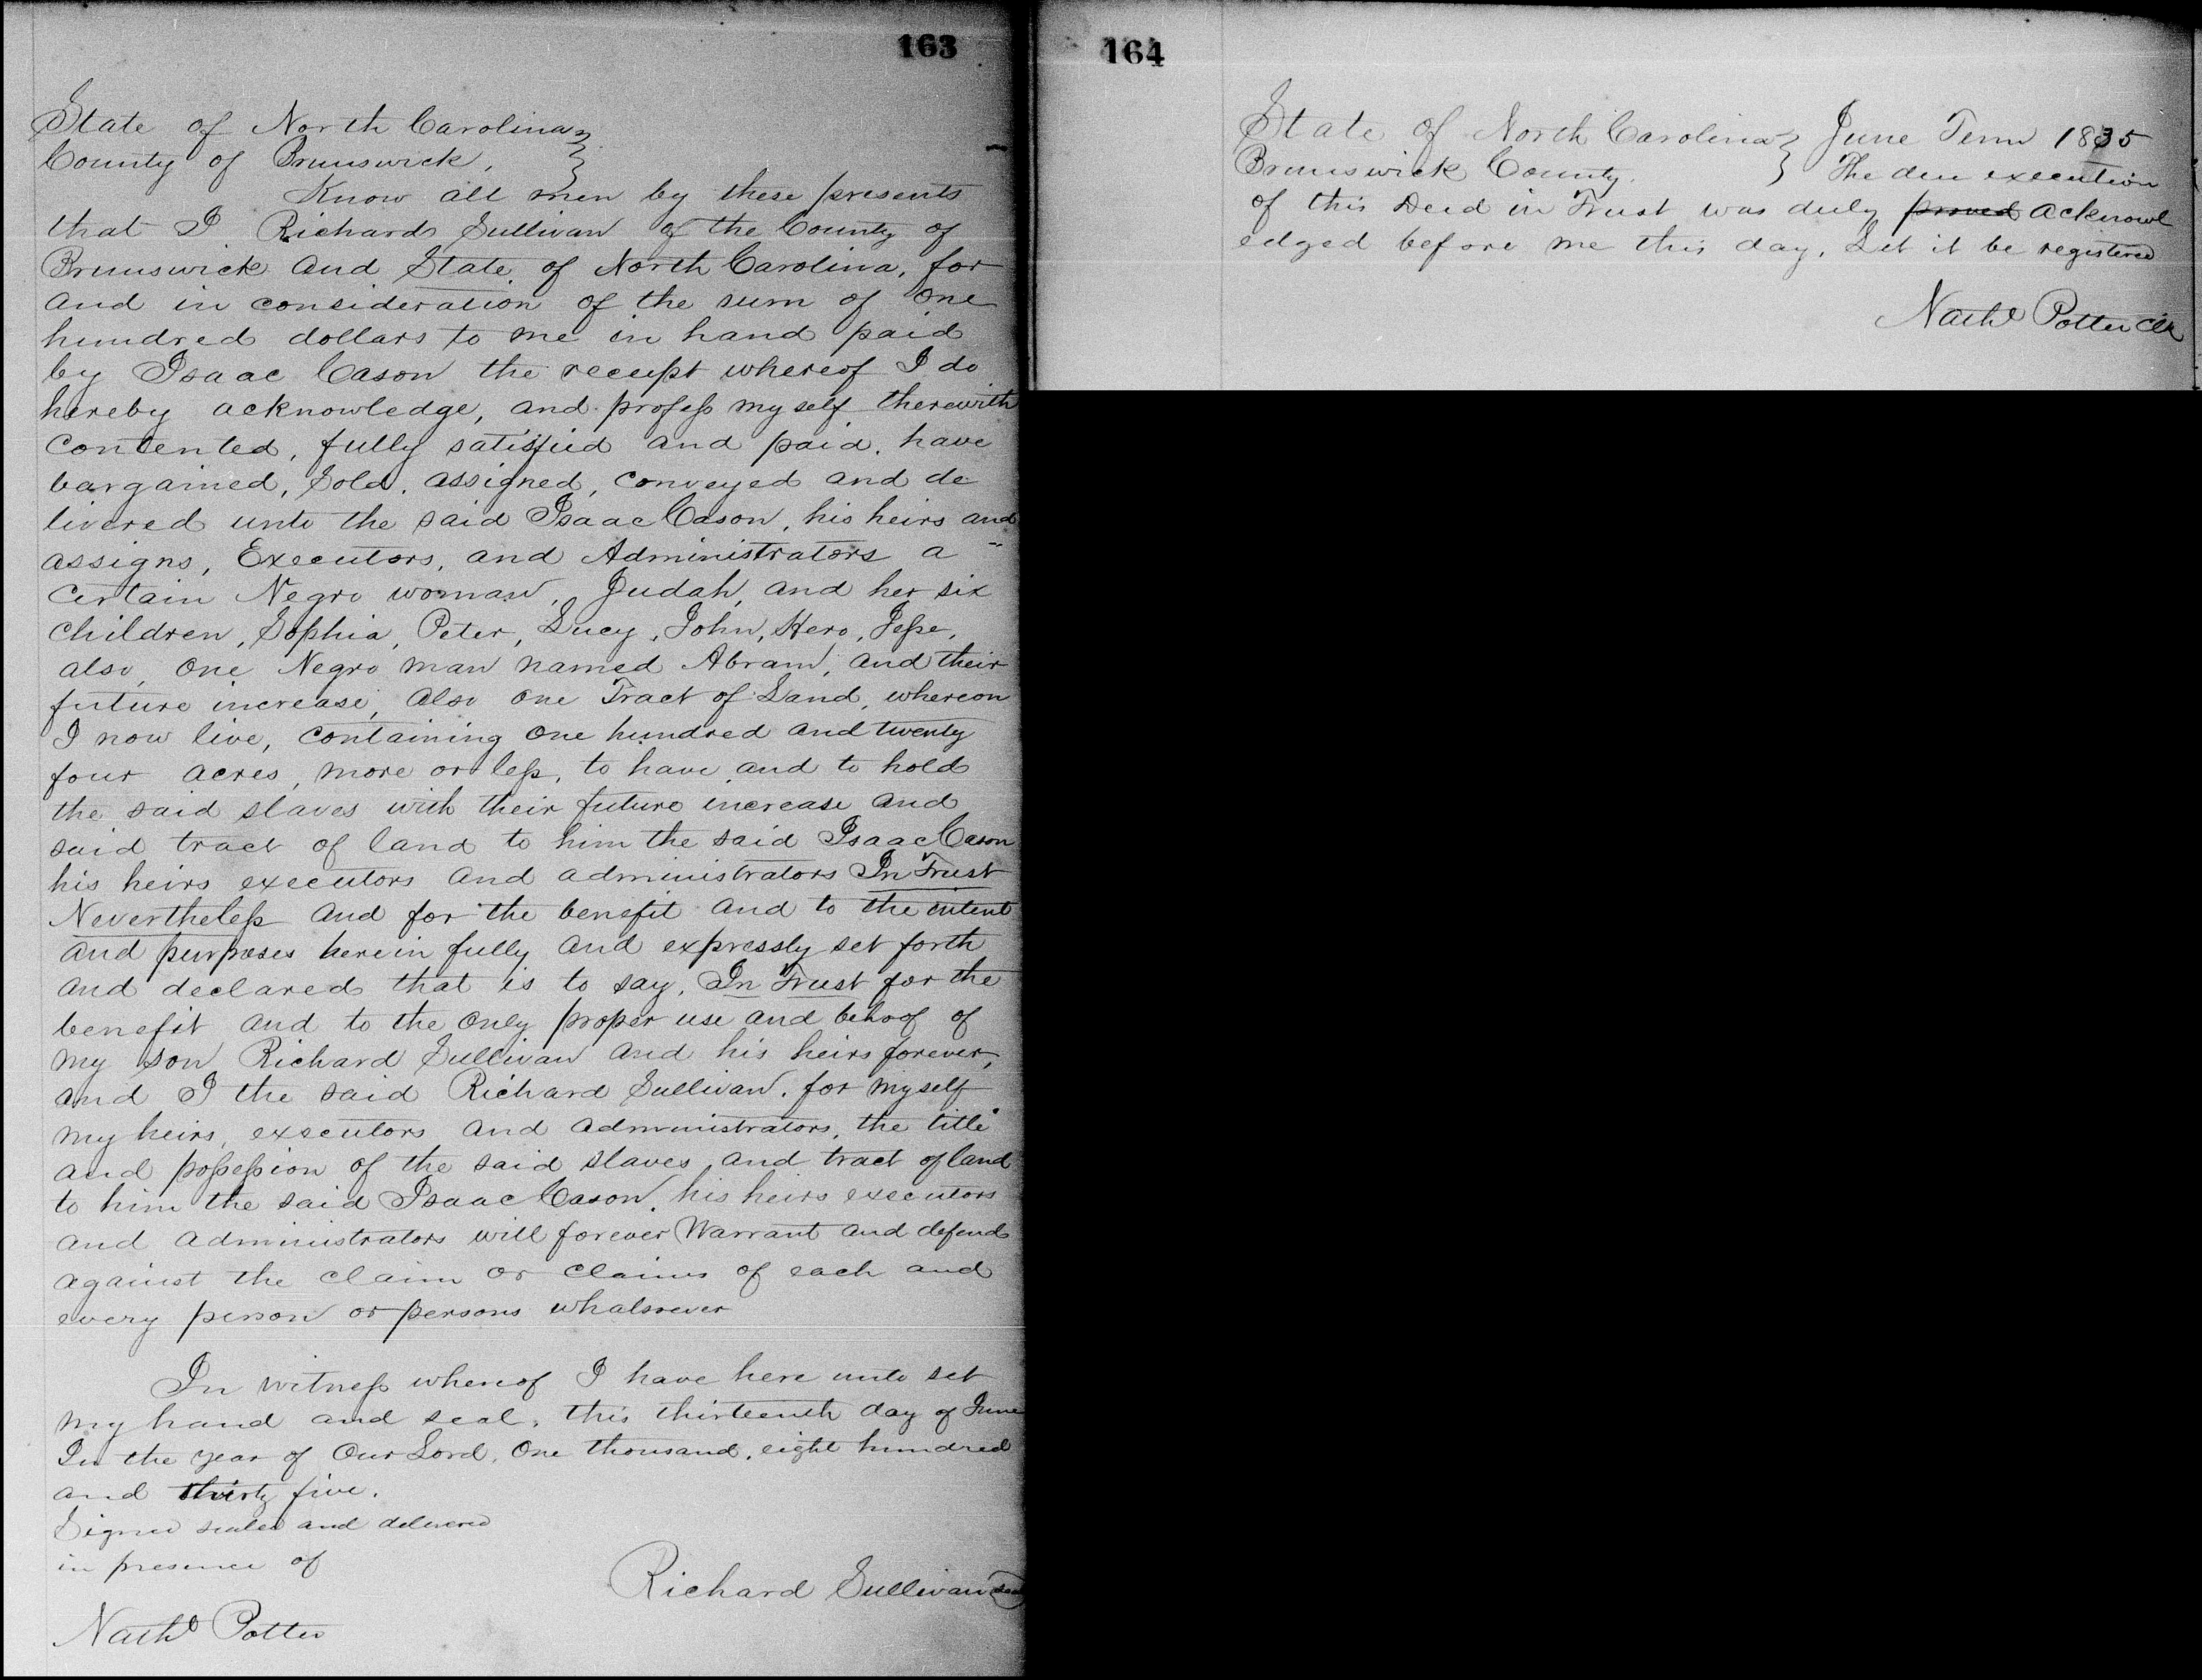 163
State of North Carolina
County of Brunswick,
Know all men by these presents
that I Richard Sullivan of the County of
Brunswick and State of North Carolina, for
and in consideration of the sum of One
hundred dollars to me in hand paid
by Isaac Cason the receipt whereof I do
hereby acknowledge, and profess my self therewith
contented, fully satisfied and paid, have
bargained, Sold, assigned, conveyed and de
livered unto the said Isaac Cason, his heirs and
assigns, Executors, and Administrators a
certain Negro woman, Judah, and her six
children, Sophia, Peter, Lucy, John, Hero, Jesse,
also, one Negro man named Abram, and their
future increase, also one Tract of Land, whereon
I now live, containing one hundred and twenty
four acres, more or less, to have and to hold
the said slaves with their future increase and
said tract of land to him the said Isaac Cason
his heirs executors and administrators In Trust
Nevertheless and for the benefit and to the intent
and purposes herein fully and expressly set forth
and declared that is to say, In Trust for the
benefit and to the only proper use and behoof of
my son Richard Sullivan and his heirs forever,
and I the said Richard Sullivan, for myself
my heirs, executors and administrators, the title
and possession of the said slaves and tract of land
to him the said Isaac Cason, his heirs executors
and administrators will forever Warrant and defend
against the claim or claims of each and
every person or persons whatsoever
In witness whereof I have here unto set
my hand and seal, this thirteenth day of June
In the year of Our Lord, One thousand, eight hundred
and thirty five.
Signed sealed and delivered
in presence of
Richard Sullivan seal
Nathl Potter
164
State of North Carolina June Term 1835
Brunswick County. The due execution
of this Deed in Trust was duly proved acknowl
edged before me this day, Let it be registered
Nathl Potter Clk